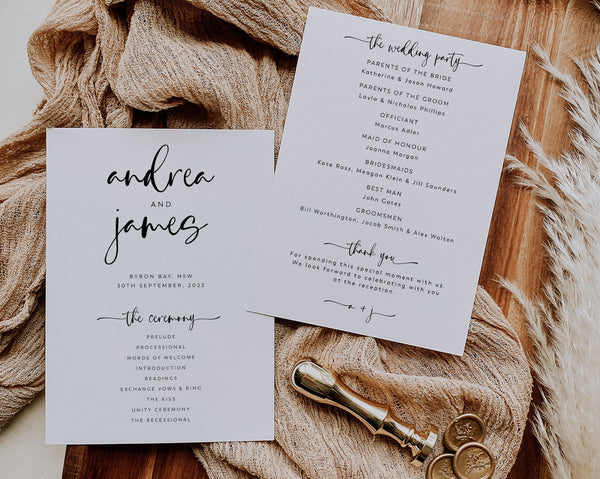 andrea
AND
james
BYRON BAY, NSW
30TH SEPTEMBER, 2023
the ceremony
PRELUDE
PROCESSIONAL
WORDS OF WELCOME
INTRODUCTION
READINGS
EXCHANGE VOWS & RING
THE KISS
UNITY CEREMONY
THE RECESSIONAL
the wedding party
PARENTS OF THE BRIDE
Katherine & Jason Howard
PARENTS OF THE GROOM
Layla & Nicholas Phillips
OFFICIANT
Marcus Adler
MAID OF HONOUR
Joanna Morgan
BRIDESMAIDS
Kate Ross, Meagan Klein & Jill Saunders
BEST MAN
John Gates
GROOMSMEN
Bill Worthington, Jacob Smith & Alex Walten
thank you
For spending this special moment with us.
We look forward to celebrating with you
at the reception.
a + j